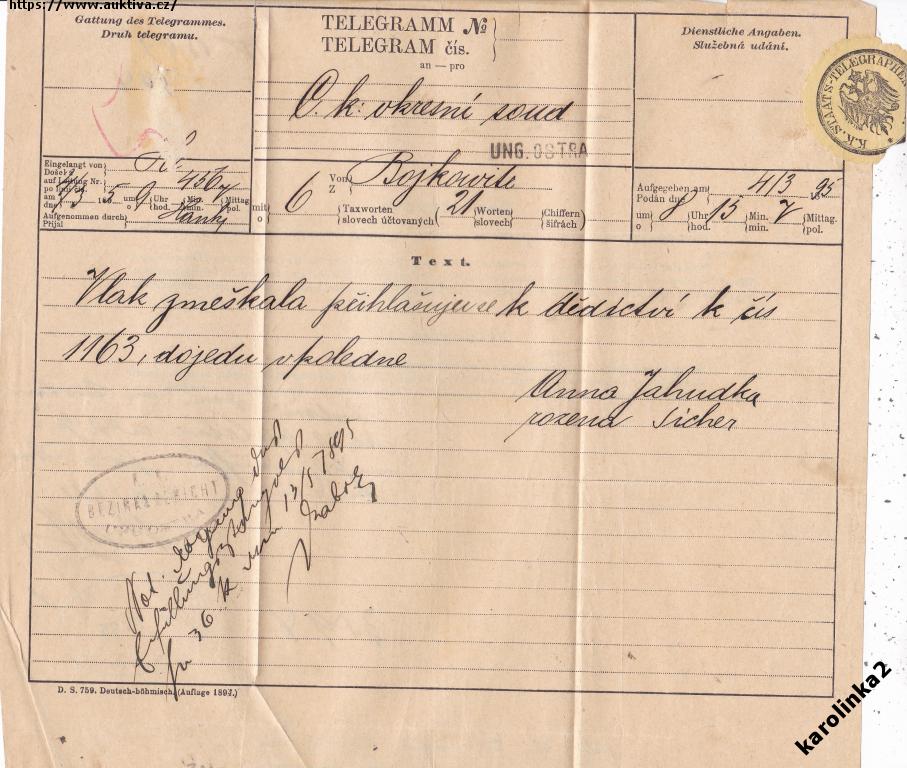 https://www.auktiva.cz/
Gattung des Telegrammes.
Druh telegramu.
TELEGRAMM №
TELEGRAM čís.
an — pro
C. k. okresní soud
UNG. OSTRA
Dienstliche Angaben.
Služebná udání.
K.K. STAATS-TELEGRAPHEN
Eingelangt von
Došel z
auf Leitung Nr.
po lince čís.
am
dne
um
o
Uhr
hod.
Min.
min.
Mittag
pol.
Aufgenommen durch
Přijal
mit
o
6
Von
Z
Bojkowitz
Taxworten
slovech účtovaných
21
Worten
slovech
Chiffern
šifrách
Aufgegeben am
Podán dne
4/3 95
um
o
8
Uhr
hod.
15
Min.
min.
Mittag.
pol.
Text.
Vlak zmeškala přihlašuju se k dědictví k čís
1163, dojedu v poledne
Anna Jahudka
rozena Sicher
BEZIRKSGERICHT
D. S. 759. Deutsch-böhmisch. (Auflage 1894.)
karolinka2